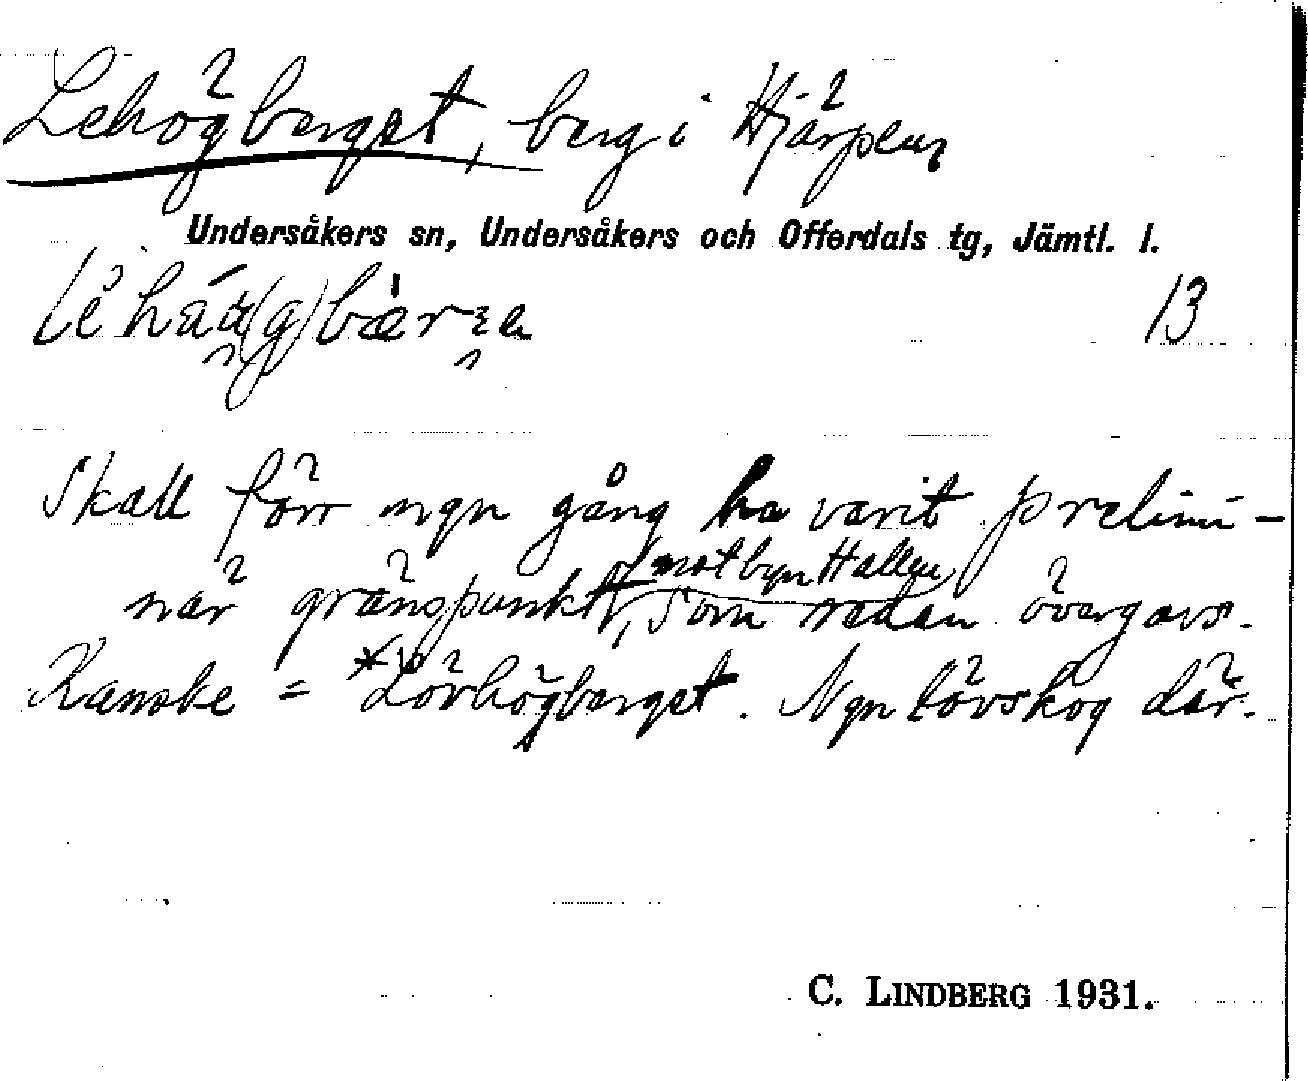 Lehögberget, berg i Hjärpen
Undersåkers sn, Undersåkers och Offerdals tg, Jämtl. l.
13
Skall förr ngn gång ha varit prelimi-
när gränspunkt mot byn Hallen, som sedan övergavs.
Kanske = *Lövhögberget. Ngn lövskog där.
C. LINDBERG 1931.